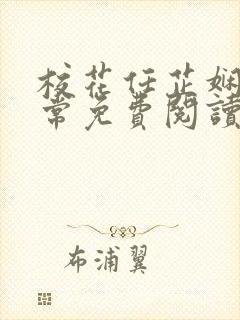 校花任芷娴
常免费閱讀
布浦翼